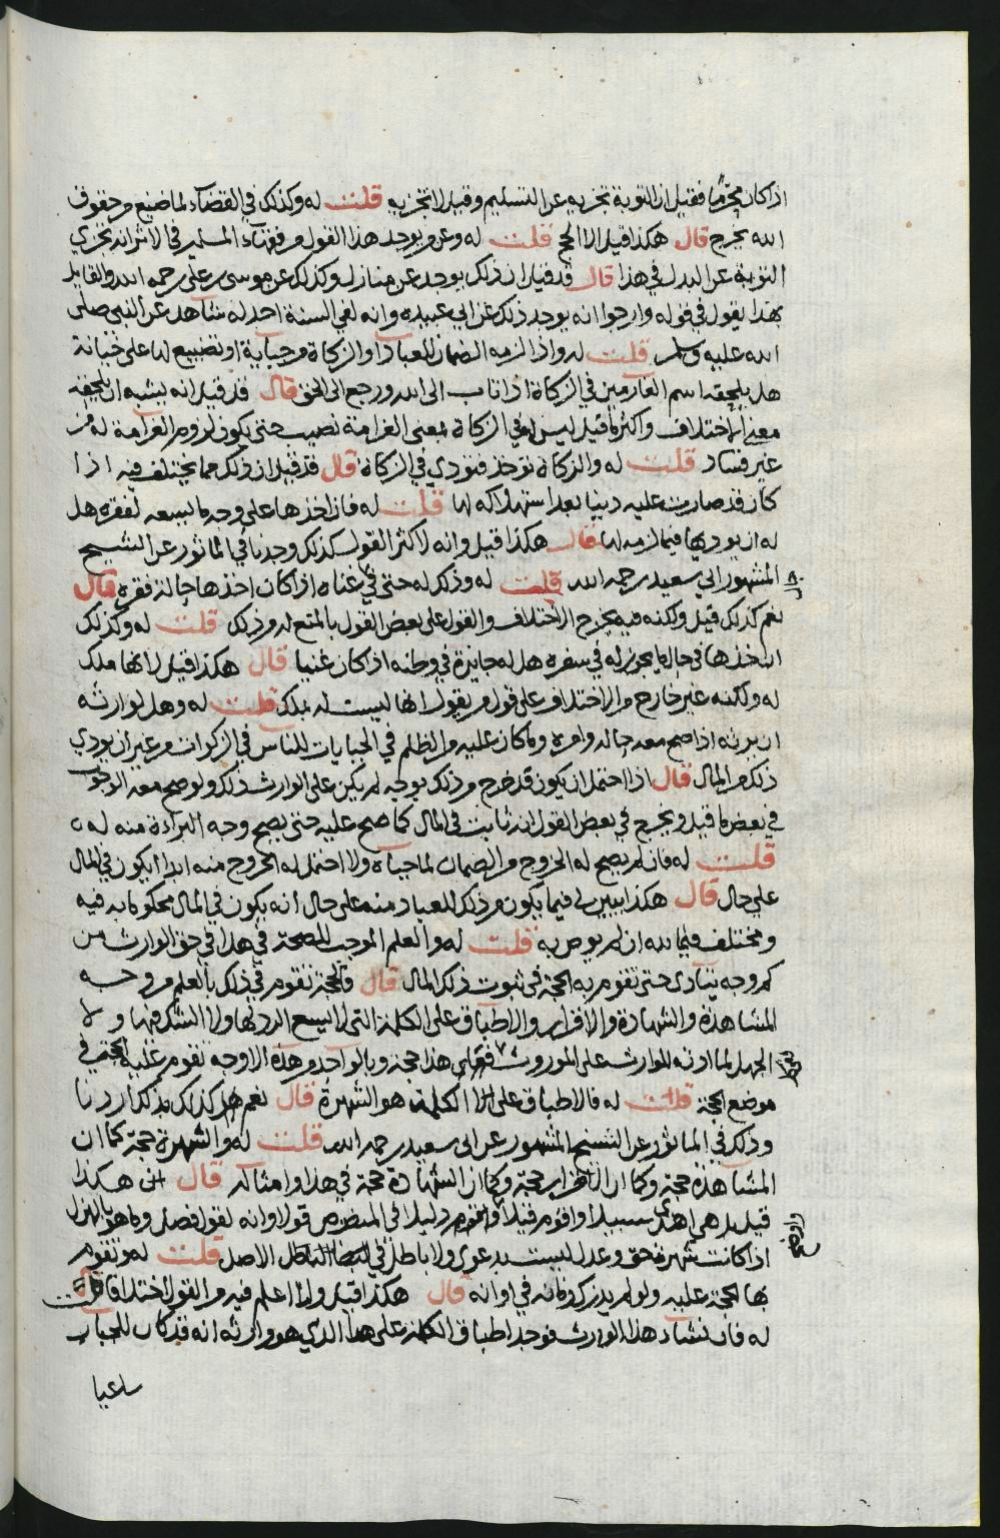 اذا كان محرما فقيل ان التوبة تجزيه عن التسليم وقيل لا تجزيه قلت له وكذلك في القضآء لما ضيع من حقوق
الله يخرج قال هكذا قيل الا الحج قلت له وعن من يوجد هذا القول من فقهآء المسلمين في الاثر انه تجزي
التوبة عن البدل في هذا قال قد قيل ان ذلك يوجد عن منازل وكذلك عن موسى بن علي رحمه الله والقايل
بهذا يقول في قوله وارجوا انه يوجد ذلك عن ابي عبيده وانه لفي السنة احد له شاهد عن النبي صلى
الله عليه وسلم قلت له واذا لزمه الضمان للعباد او الزكاة من جباية او تضييع لها على خيانة
هل يلحقه اسم الغارمين في الزكاة اذا تاب الى الله ورجع الى الحق قال قد قيل انه يشبه ان يلحقه
معنى الاختلاف واكثر ما قيل ليس له في الزكاة لمعنى الغرامة نصيب حتى يكون لزوم الغرامة له من
غير فساد قلت له والزكاة تؤخذ فتودي في الزكاة قال قد قيل ان ذلك مما يختلف فيه اذا
كان قد صارت عليه دينا بعد استهلاكه لها قلت له فان اخذها على وجه ما يسعه لفقره هل
له ان يوديها فيما لزمه لها قال هكذا قيل وانه لاكثر القول كذلك وجدنا في الماثور عن الشيخ
المشهور ابي سعيد رحمه الله قلت له وذلك له حتى في غناه اذا كان اخذها حالة فقره قال
نعم كذلك قيل ولكنه فيه يخرج الاختلاف والقول على بعض القول بالمنع له من ذلك قلت له وكذلك
ان اخذها في حال ما يجوز له في سفره هل له جايزة في وطنه اذا كان غنيا قال هكذا قيل لانها ملك
له ولكنه غير خارج من الاختلاف على قول من يقول انها ليست له بملك قلت له وهل لوارثه
ان يرثه اذا صح معه حاله وامره وما كان عليه من الظلم في الجبايات للناس في الزكوات من غير ان يودي
ذلك من المال قال اذا احتمل ان يكون قد خرج من ذلك بوجه لم يكن على الوارث ذلك ولو صح معه الوجوب
في بعض ما قيل ويخرج في بعض القول انه ثابت في المال كما صح عليه حتى يصح وجه البراءة منه له
قلت له فان لم يصح له الخروج من الضمان لما جباه ولا احتمل له الخروج منه ابدا ايكون في المال
على حال قال هكذا يبين لي فيما يكون من ذلك للعباد منه على حال انه يكون في المال محكوما به فيه
ومختلف فيما لله ان لم يوص به قلت له والعلم الموجب للصحة في هذا في حق الوارث من
كم وجه يتادى حتى تقوم به الحجة في ثبوت ذلك المال قال والحجة تقوم في ذلك بالعلم من وجه
المشاهدة والشهادة والاقرار والاطباق على الكلمة التي لا يسع الرد لها ولا الشك فيها ولا
الجهل لما ادته للوارث على الموروث فعلى هذا حجة وبالواحد من هذه الاوجه تقوم عليه الحجة في
موضع الحجة قلت له فالاطباق على الكلمة هو الشهرة قال نعم هو كذلك بذلك اردنا
وذلك في الماثور عن الشيخ المشهور عن ابي سعيد رحمه الله قلت له والشهرة حجة كما ان
المشاهدة حجة وكما ان الاقرار حجة وكما ان الشهادة حجة في هذا وامثاله قال هكذا
قيل بل هي اهدى سبيلا واقوم قيلا واقوم دليلا في المنصوص قولا وانه لقول فصل وما هو بالهزل
اذا كانت شهرة حق وعدل ليست بدعوى ولا باطل في الاصل قلت له وتقوم
بها الحجة عليه ولو لم يدرك زمانه في اوانه قال هكذا قيل ولا اعلم فيه من القول اختلافا قلت
له فان نشاء هذا الوارث فوجد اطباق الكلمة على هذا الذي هو وارثه انه قد كان للجبار
ساعيا